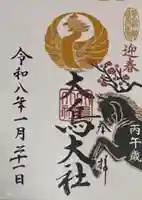 迎春
丙午歳
奉拝
大鳥大社
令和八年一月二十一日